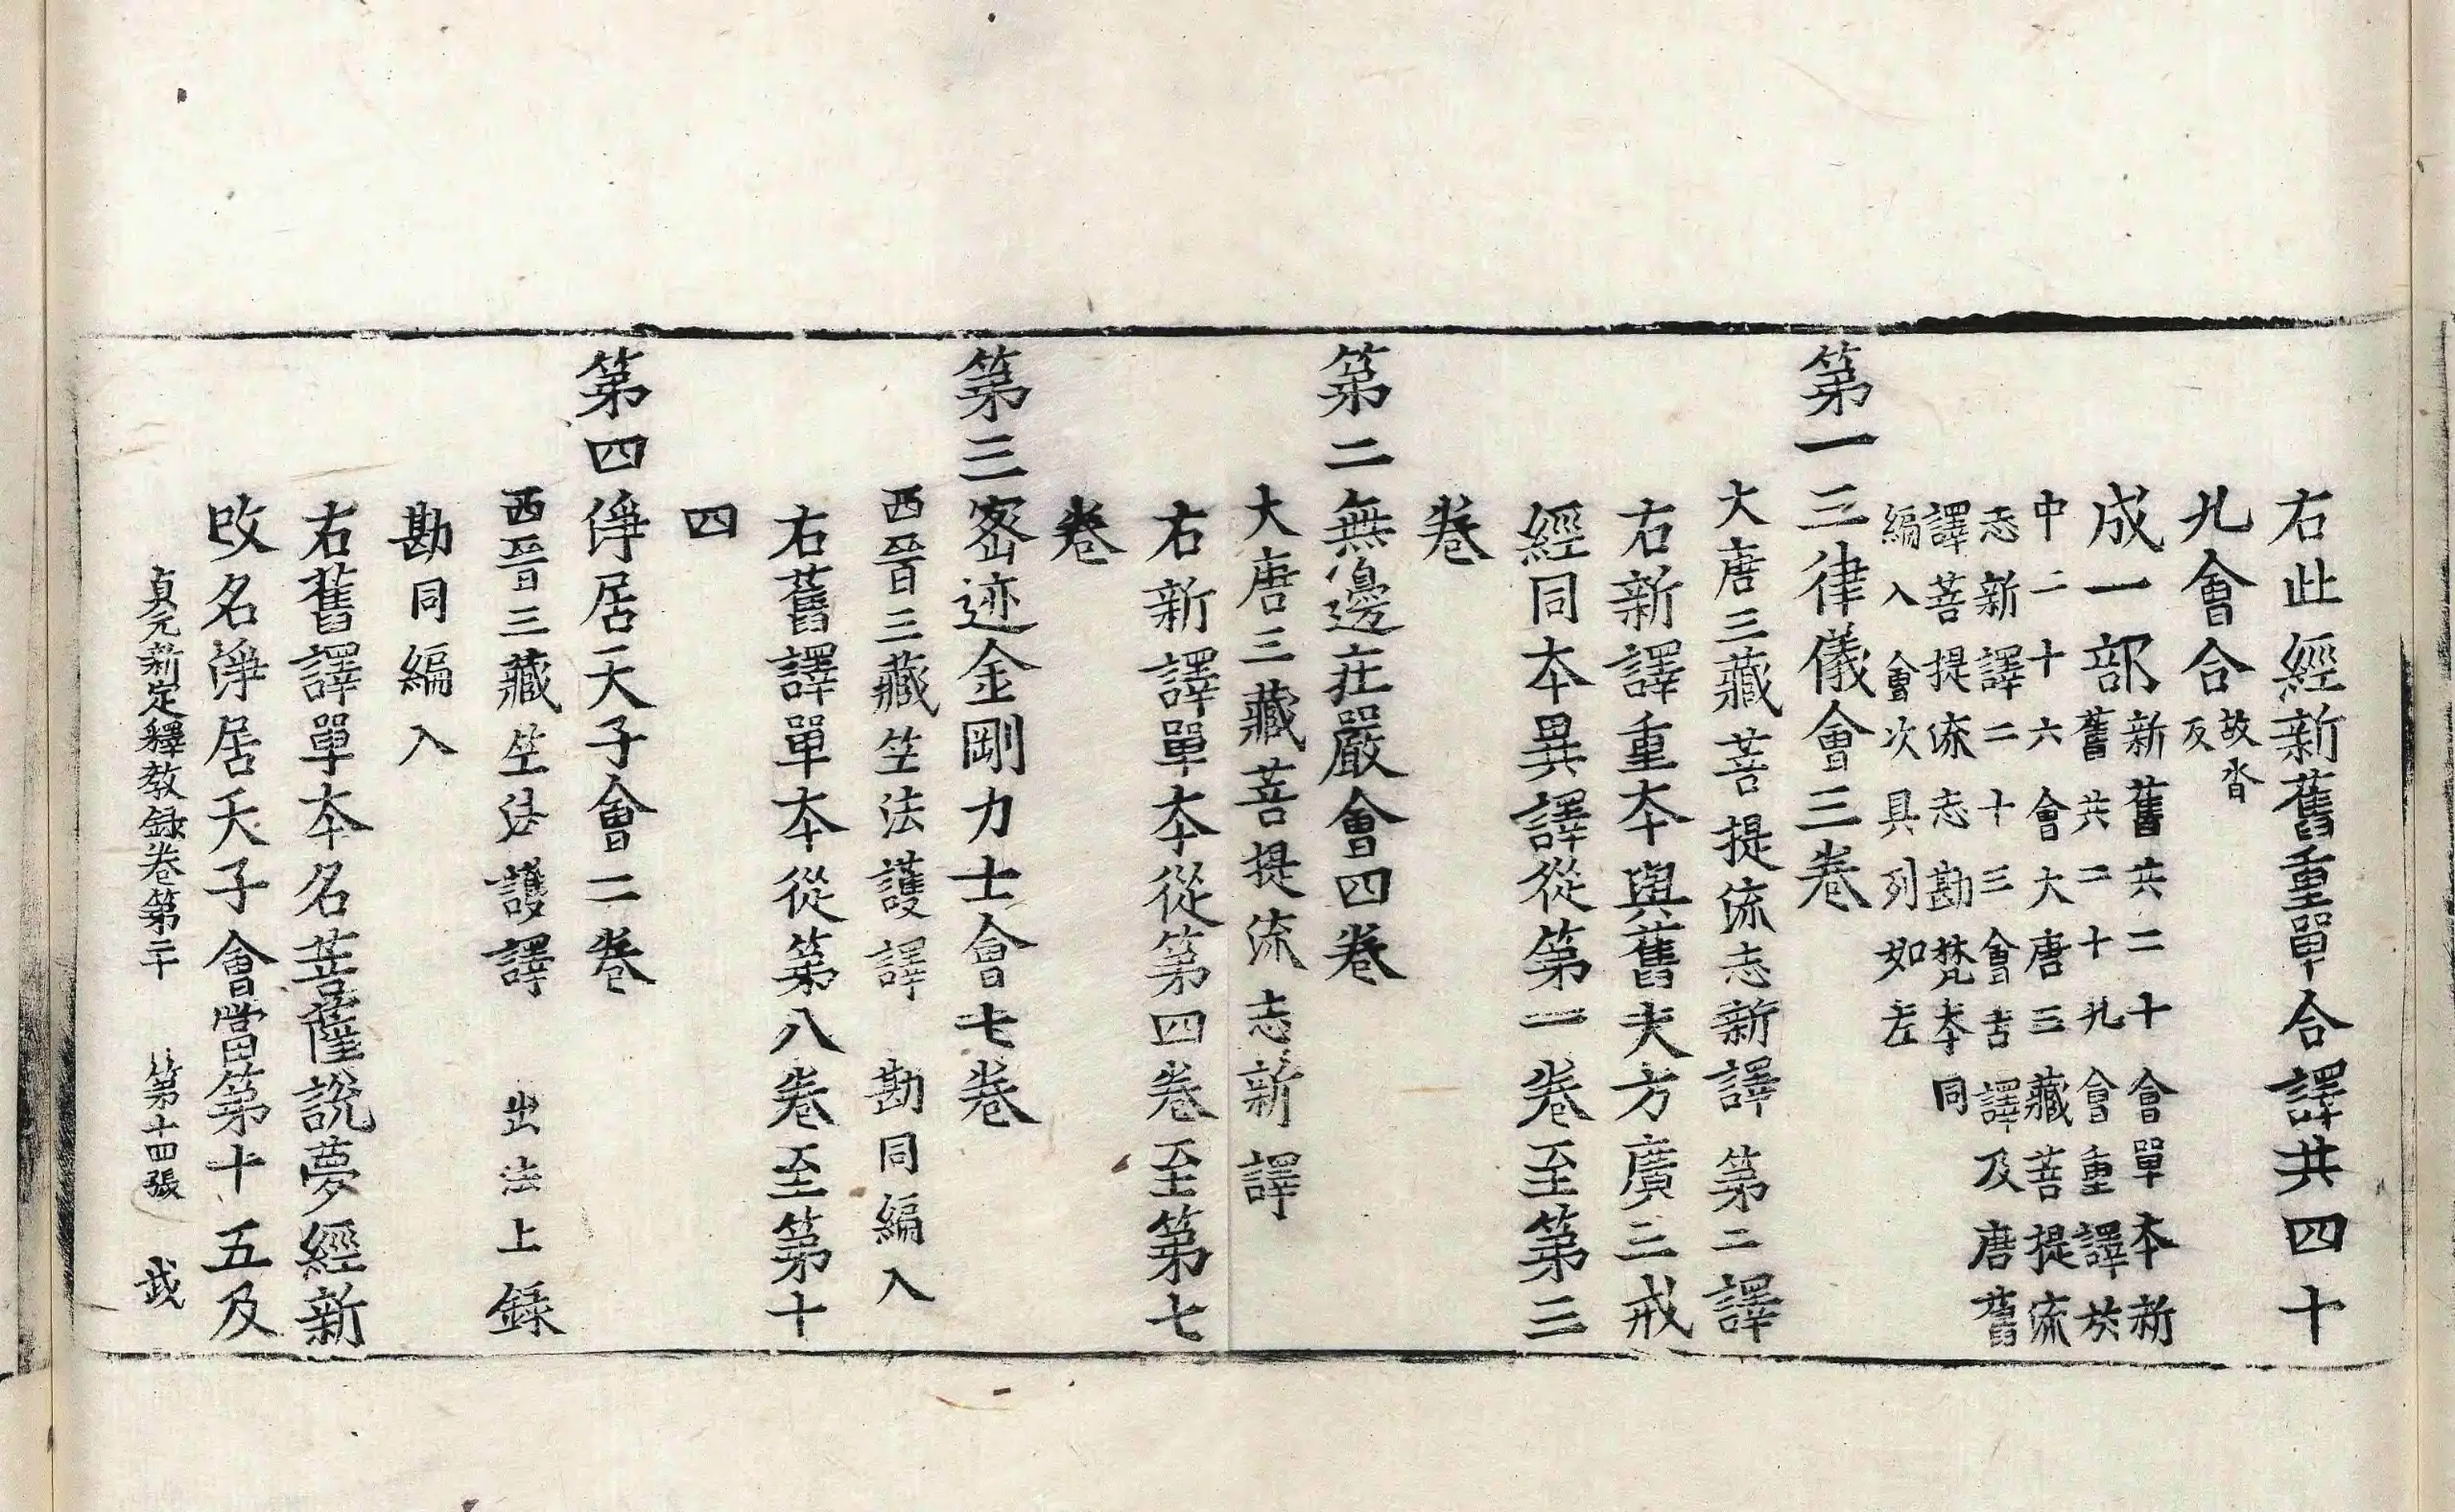 右此經新舊重單合譯共四十
九會合故沓反
成一部新舊共二十會單本新
舊共二十九會重譯於
中二十六會大唐三藏菩提流
志新譯二十三會古譯及唐舊
譯菩提流志勘梵本同
編入會次具列如左
第一三律儀會三卷
大唐三藏菩提流志新譯第二譯
右新譯重本與舊大方廣三戒
經同本異譯從第一卷至第三
卷
第二無邊莊嚴會四卷
大唐三藏菩提流志新譯
右新譯單本從第四卷至第七
卷
第三密迹金剛力士會七卷
西晉三藏竺法護譯 勘同編入
右舊譯單本從第八卷至第十
四
第四淨居天子會二卷
西晉三藏竺法護譯 出法上錄
勘同編入
右舊譯單本名菩薩說夢經新
改名淨居天子會當第十五及
貞元新定釋教錄卷第二十 第十四張